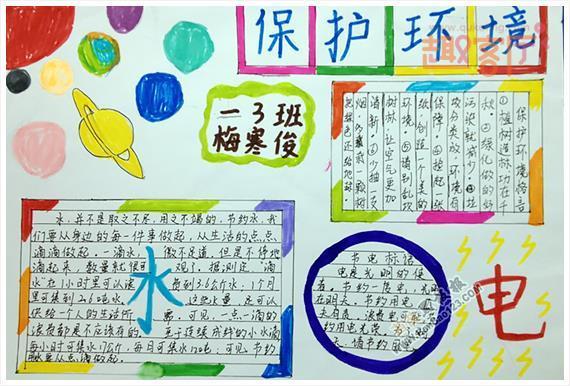 保护环境
一3班
梅寒俊
保护环境格言
①植树造林功在千
秋。②绿化做的好
污染就减少。③垃
圾分类放,环境有
保障。④捡起一张
纸,创造一个美的
环境。⑤请别乱砍
树林,让空气更加
清新。⑥少抽一支
烟,多栽一颗树
把绿色还给地球。
水
水,并不是取之不尽,用之不竭的,节约水,我
们要从身边的每一件事做起,从生活的点点
滴滴做起。一滴水,微不足道,但是不停地
滴起来,数量就很可观了。据测定"滴
水"在1小时里可以浪费到3.6公斤水;1个月
里可集到2.6吨水。这些水量,足可以
供给一个人的生活所需。可见,一点一滴的
浪费都是不应该有的。至于连续成线的小水滴
每小时可集水17公斤,每月可集水12吨;可见,节约
水要从点滴做起。
节电标语
电是光明的使
者,节约一度电,光明
在明天,节约用电
约用电光荣
情节约
电